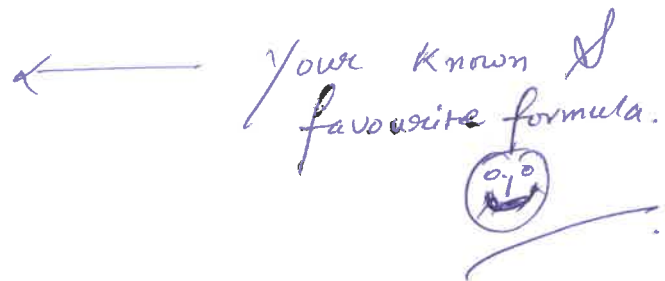 Your known &
favourite formula.